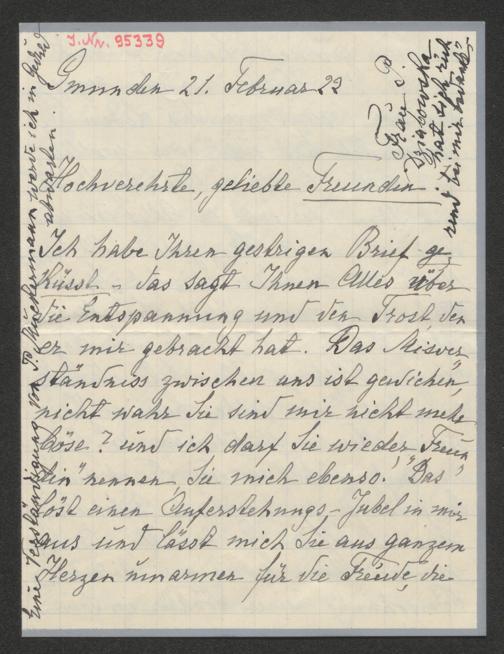 J.N. 95339
Gmunden 21. Februar 22
Frau P.
Dzialowska
hat sich rüh
rend bei mir bedankt.
Hochverehrte, geliebte Freundin.
Ich habe Ihren gestrigen Brief ge
küsst – das sagt Ihnen Alles über
die Entspannung und den Trost, den
er mir gebracht hat. Das Misver
ständniss zwischen uns ist gewichen,
nicht wahr Sie sind mir nicht mehr
böse? und ich darf Sie wieder „Freun
din" nennen, Sie mich ebenso. Das
löst einen Auferstehungs-Jubel in mir
aus und lässt mich Sie aus ganzem
Herzen umarmen für die Freude, die
Eine Verständigung von P. Muckermann werde ich in Geduld
abwarten.